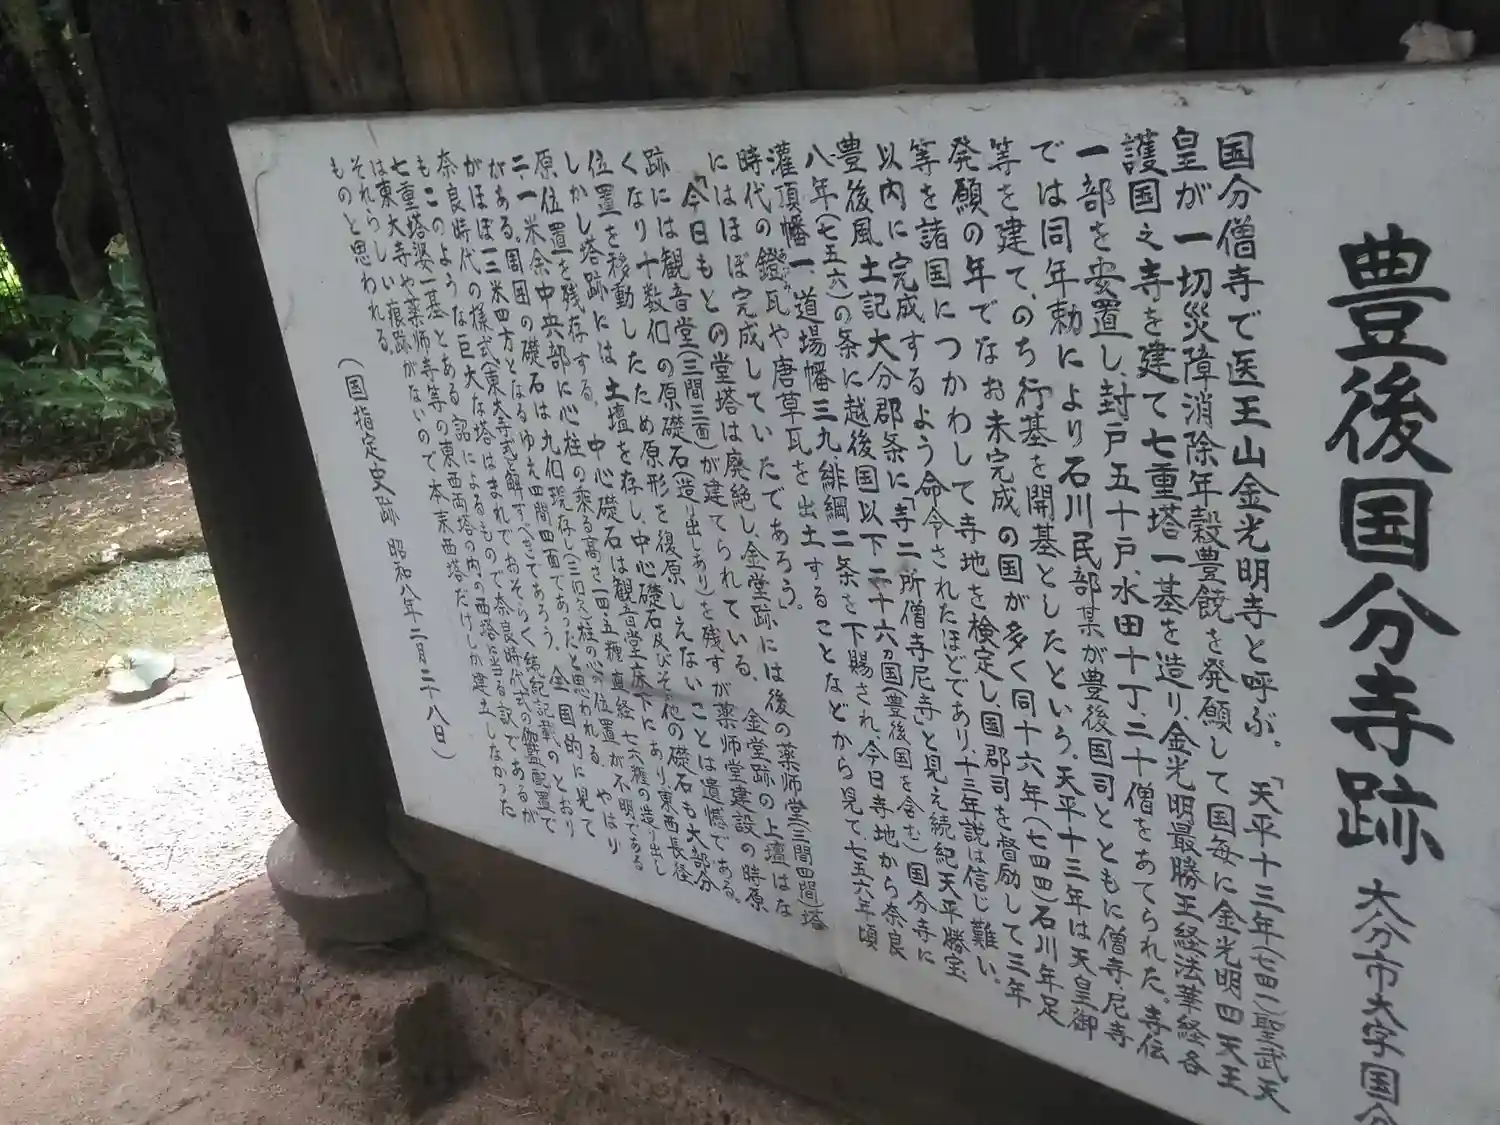 豊後国分寺跡 大分市大字国分
国分僧寺で医王山金光明寺と呼ぶ。「天平十三年(七四一)聖武天
皇が一切災障消除年穀豊饒を発願して国毎に金光明四天王
護国之寺を建て七重塔一基を造り、金光明最勝王経法華経各
一部を安置し、封戸五十戸、水田十丁、二十僧をあてられた。寺伝
では同年勅により石川民部某が豊後国司とともに僧寺、尼寺
等を建て、のち行基を開基としたという。天平十三年は天皇御
発願の年でなお未完成の国が多く同十六年(七四四)石川年足
等を諸国につかわして寺地を検定し、国郡司を督励して三年
以内に完成するよう命令されたほどであり、十三年説は信じ難い。
豊後風土記大分郡条に「寺二所僧寺尼寺」と見え続紀天平勝宝
八年(七五六)の条に越後国以下二十六ヵ国(豊後国を含む)国分寺に
灌頂幡一、道場幡三九緋綱二条を下賜され、今日寺地から奈良
時代の鐙瓦や唐草瓦を出土することなどから見て、七五六年頃
にはほぼ完成していたであろう。」
「今日もとの堂塔は廃絶し、金堂跡には後の薬師堂(三間四間)塔
跡には観音堂(三間三面)が建てられている。金堂跡の上壇はな
くなり十数個の原礎石(造り出しあり)を残すが薬師堂建設の時原
位置を移動したため原形を復原しえないことは遺憾である。
しかし塔跡には土壇を存し、中心礎石及びその他の礎石も大部分
原位置を残存する。中心礎石は観音堂床下にあり、東西長径
二・一米余中央部に心柱の乗る高さ一四・五糎直経七六糎の造り出し
がある。周囲の礎石は九個現存し(三個欠)柱の心の位置が不明である
がほぼ一三米四方となるゆえ四間四面であったと思われる。やはり
奈良時代の様式(東大寺式)と解すべきであろう。全国的に見て
もこのような巨大な塔はまれでおそらく続紀記載の式のとおり
七重塔婆一基とある詔によるもので奈良時代式の伽藍配置で
は東大寺や薬師寺等の東西両塔の内の西塔に当る訳であるが
それらしい痕跡がないので本来西塔だけしか建立しなかった
ものと思われる。
(国指定史跡 昭和八年二月二八日)